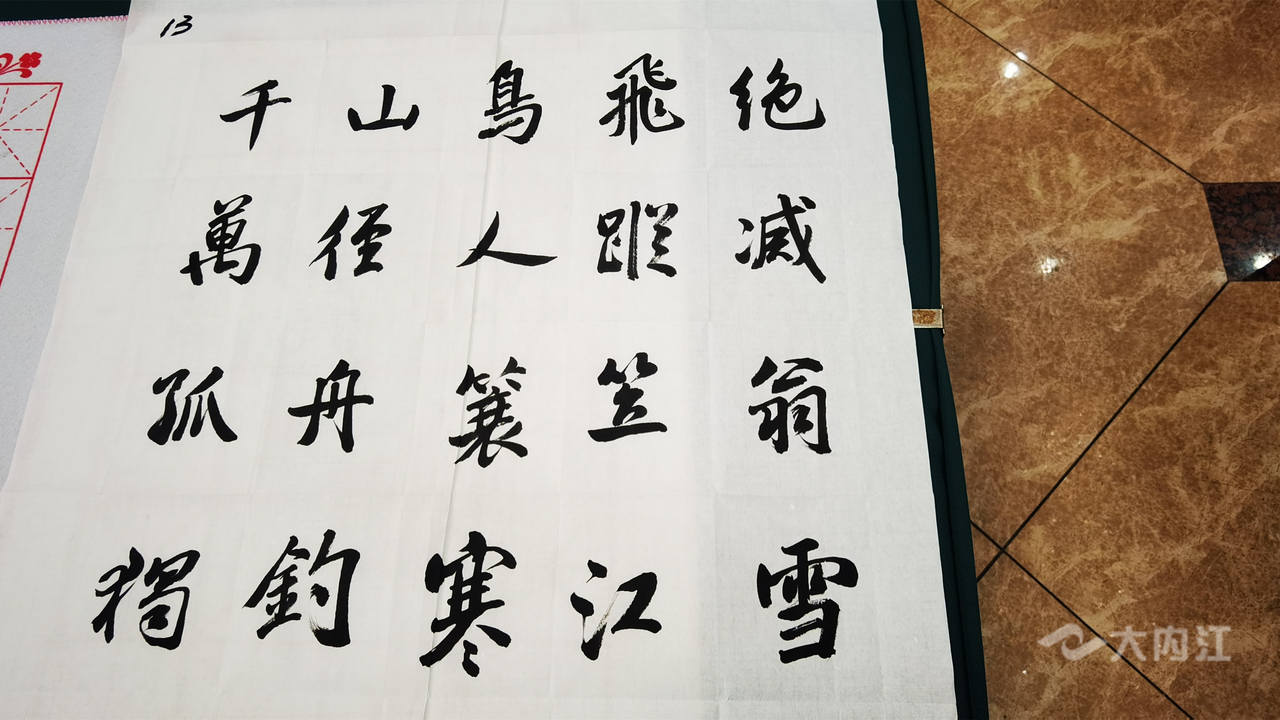 13
千山鳥飛绝
萬徑人蹤滅
孤舟簑笠翁
獨釣寒江雪
大内江